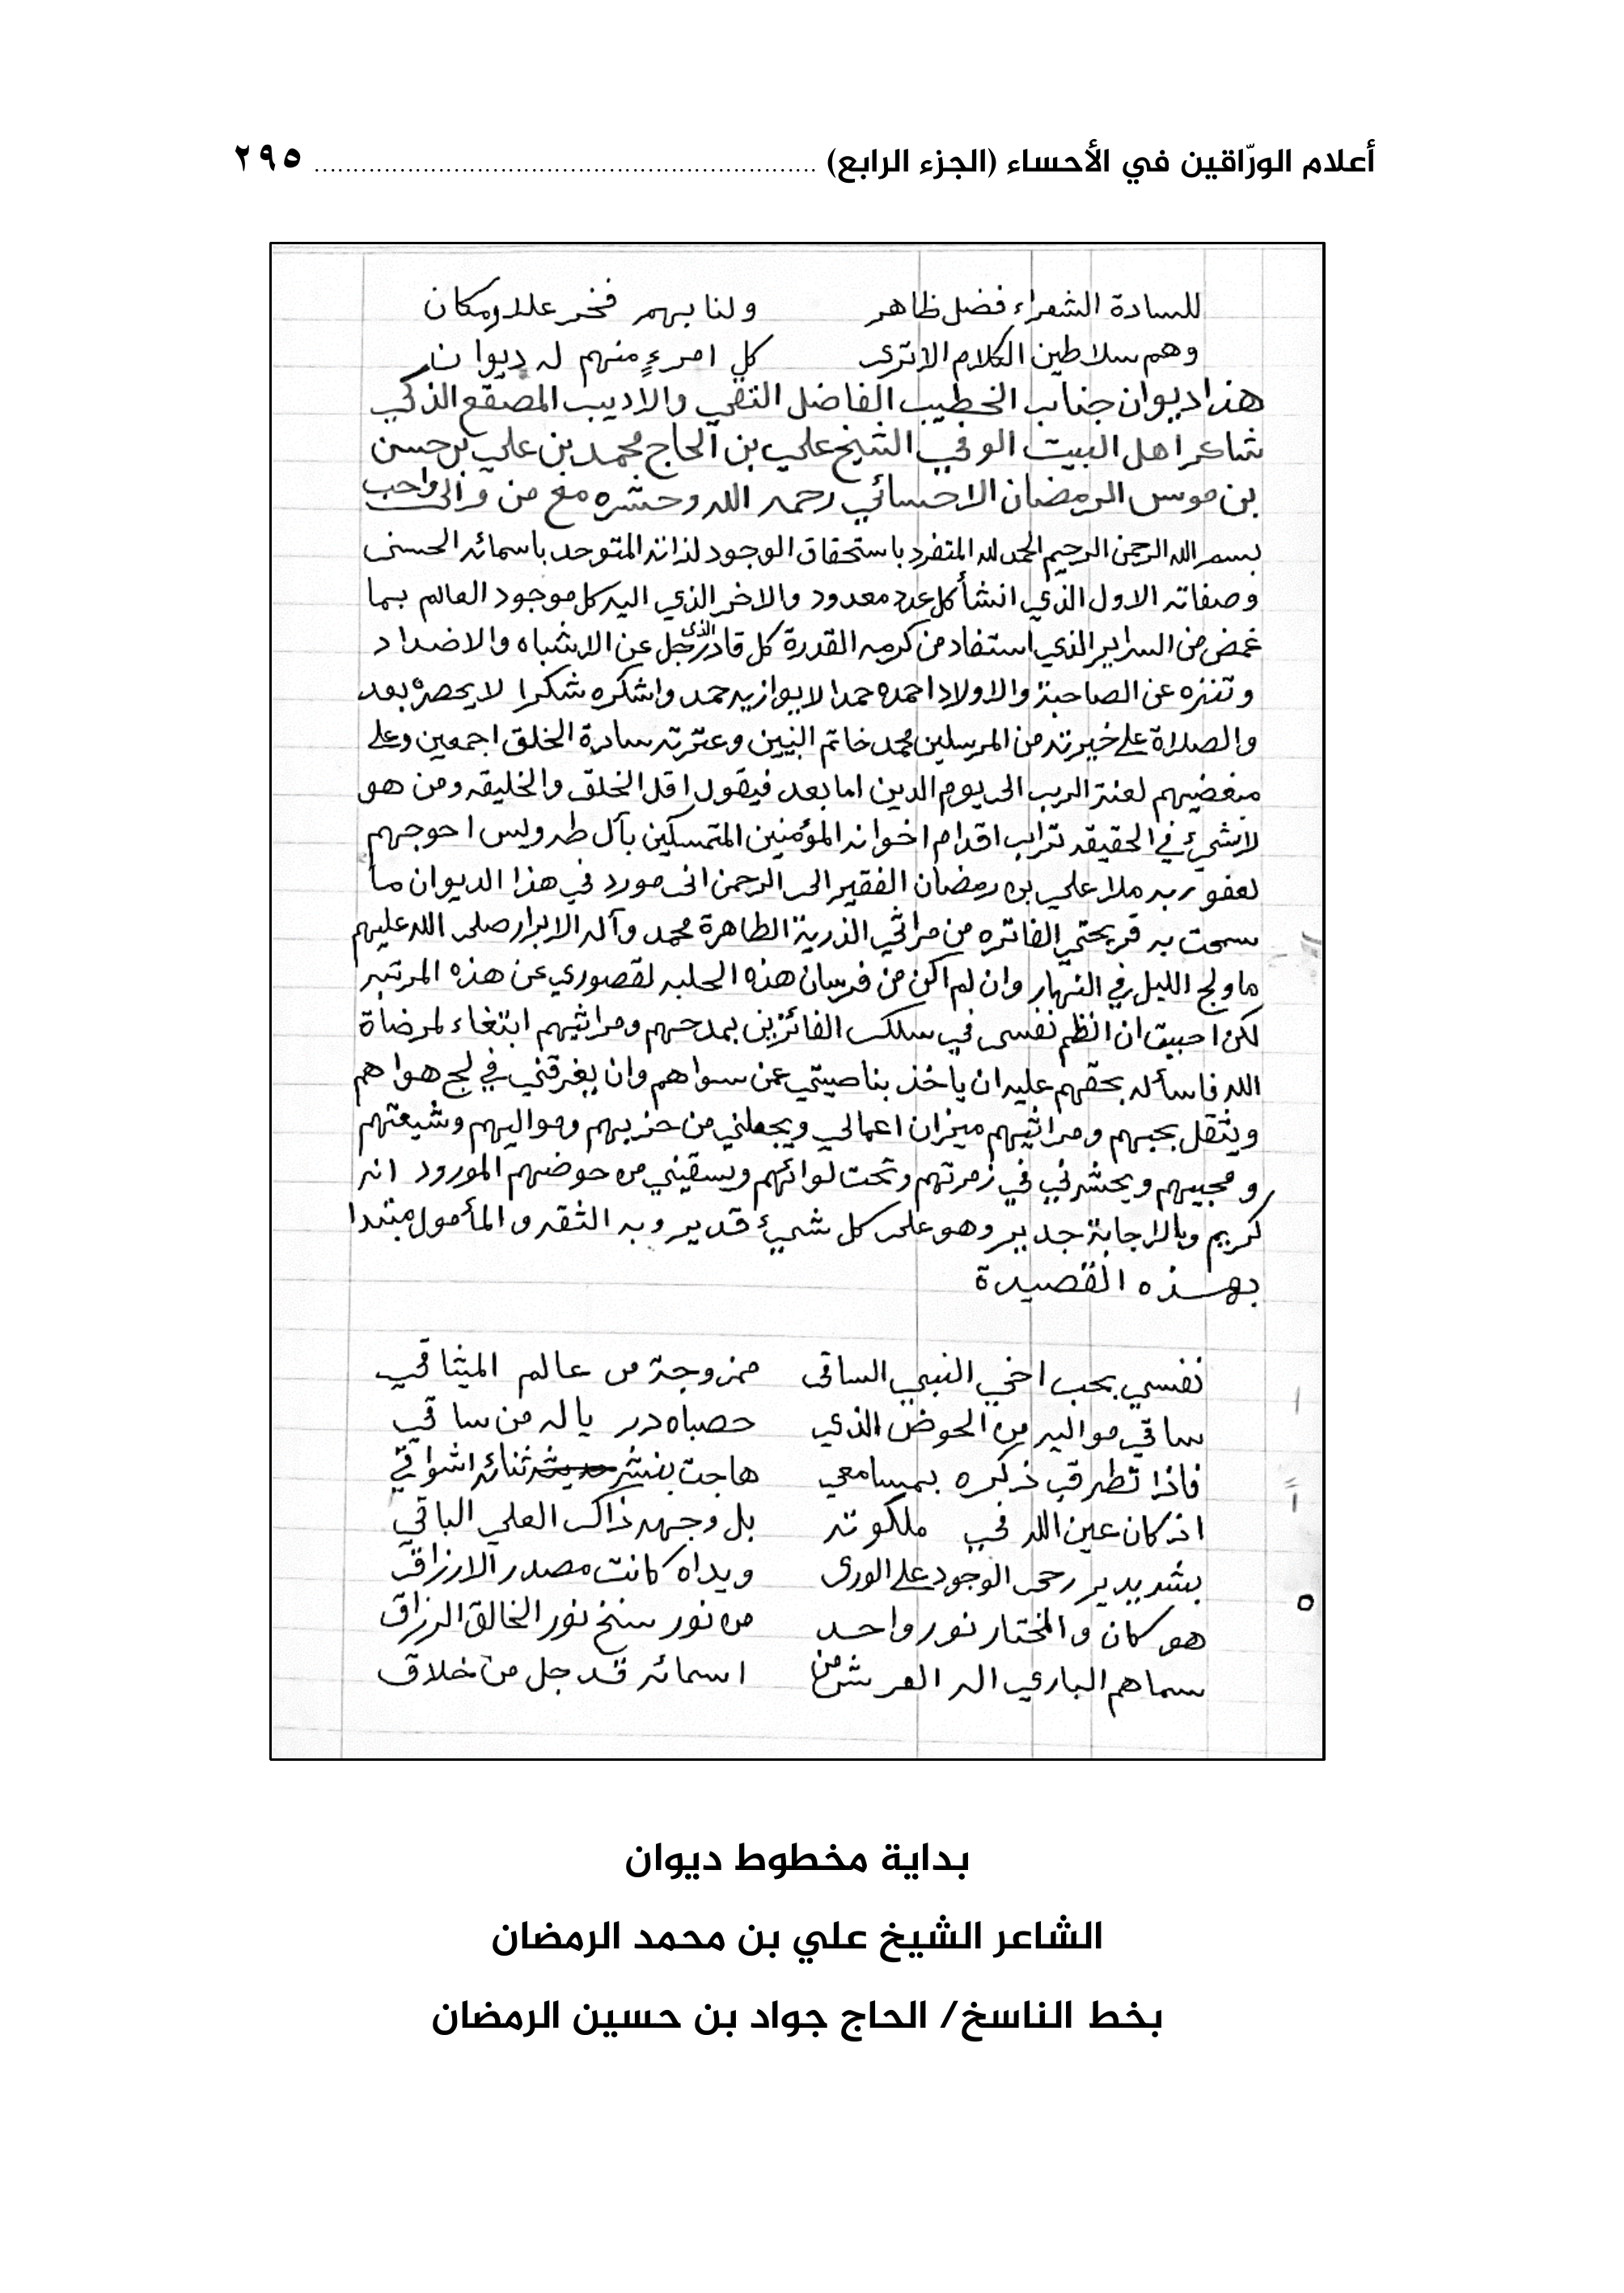 أعلام الورّاقين في الأحساء (الجزء الرابع) ................................................................ ٢٩٥
للسادة الشعراء فضل ظاهر ولنا بهم فخر علا ومكان
وهم سلاطين الكلام الا ترى كل امرءٍ منهم له ديوان
هذا ديوان جناب الخطيب الفاضل التقي والاديب المصقع الذكي
شاعر اهل البيت الوفي الشيخ علي بن الحاج محمد بن علي بن حسن
بن موسى الرمضان الاحسائي رحمه الله وحشره مع من والى واحب
بسم الله الرحمن الرحيم الحمد لله المتفرد باستحقاق الوجود لذاته المتوحد باسمائه الحسنى
وصفاته الاول الذي انشأ كل عدد معدود والاخر الذي اليه كل موجود العالم بما
غمض من السراير الذي استفاد من كرمه القدرة كل قادر الذي جل عن الاشباه والاضداد
وتنزه عن الصاحبة والاولاد احمده حمدا لا يوازيه حمد واشكره شكرا لا يحصره بعد
والصلاة على خيرته من المرسلين محمد خاتم النبيين وعترته سادة الخلق اجمعين وعلى
مبغضيهم لعنة الرب الى يوم الدين اما بعد فيقول اقل الخلق والخليقه ومن هو
لا شيئ في الحقيقه تراب اقدام اخوانه المؤمنين المتمسكين بآل طه ويس احوجهم
لعفو ربه ملا علي بن رمضان الفقير الى الرحمن انى مورد في هذا الديوان ما
سمحت به قريحتي الفاتره من مراثي الذرية الطاهرة محمد وآله الابرار صلى الله عليهم
ما ولج الليل في النهار وان لم اكن من فرسان هذه الحلبه لقصوري عن هذه المرتبه
لكن احببت ان انظم نفسي في سلك الفائزين بمدحهم ومراثيهم ابتغاء لمرضاة
الله فاسأله بحقهم عليه ان ياخذ بناصيتي عمن سواهم وان يغرقني في لجج هواهم
ويثقل بحبهم ومراثيهم ميزان اعمالي ويجعلني من حزبهم ومواليهم وشيعتهم
ومحبيهم ويحشرني في زمرتهم وتحت لوائهم ويسقيني من حوضهم المورود انه
كريم وبالاجابة جدير وهو على كل شيئ قدير وبه الثقه والمأمول مبتدا
بهذه القصيدة
نفسي بحب اخي النبي الساقى ممزوجة من عالم الميثاقي
ساقي مواليه من الحوض الذي حصباه در يا له من ساقي
فاذا تطرق ذكره بمسامعي هاجت بنشر حديث ثنائه اشواقي
اذ كان عين الله في ملكوته بل وجهه ذاك العلي الباقي
بيديه رحى الوجود على الورى ويداه كانت مصدر الارزاق
هو كان والمختار نور واحد من نور سنخ نور الخالق الرزاق
سماهم الباري اله العرش من اسمائه قد جل من خلاق
٥
بداية مخطوط ديوان
الشاعر الشيخ علي بن محمد الرمضان
بخط الناسخ/ الحاج جواد بن حسين الرمضان